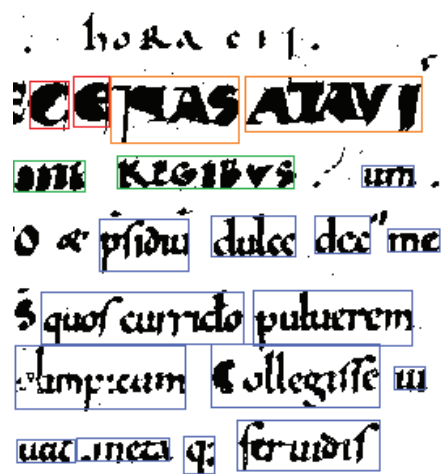 horacii.
CENAS ATAVI
REGIBVS um
O & p̄sidiu dulce dec" me
S quos curriclo puluerem
olimpicum Collegisse iu
uat meta q: feruidis